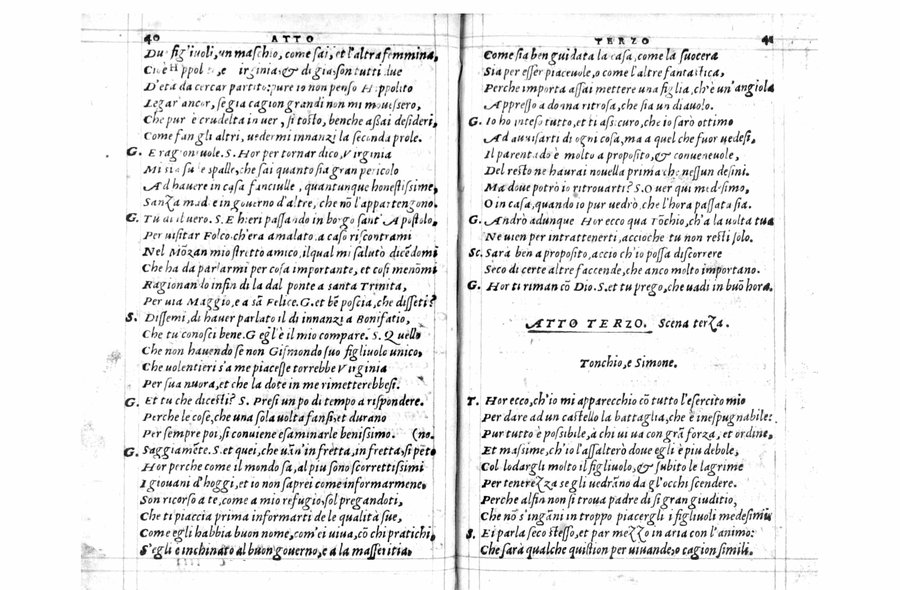 40 ATTO
Du figliuoli, un maschio, come sai, et l'altra femmina,
Cioè Hippol e irginia, & di già son tutti due
D'età da cercar partito: pure io non penso Hippolito
Legar' ancor, se gia cagion grandi non mi mouessero,
Che pur è crudelta in uer, si tosto, benche aßai desideri,
Come fan gli altri, uedermi innanzi la seconda prole.
G. E ragioneuole. S. Hor per tornar dico, Virginia
Mi sta su le spalle, che sai quanto sia gran pericolo
Ad hauere in casa fanciulle, quantunque honestissime,
Sanza madre in gouerno d'altre, che nō l'appartengono.
G. Tu di il uero. S. E hieri passando in borgo sant' Apostolo,
Per uisitar Folco ch'era amalato, a caso riscontrami
Nel Mōzan mio stretto amico, il qual mi salutò dicēdomi
Che ha da parlarmi per cosa importante, et cosi menōmi
Ragionando infin di la dal ponte a santa Trinita,
Per uia Maggio, e a sā Felice. G. et bē poscia, che disseti?
S. Dissemi, di hauer parlato il dì innanzi a Bonifatio,
Che tu conosci bene. G egl'è il mio compare. S. Quello
Che non hauendo se non Gismondo suo figliuolo unico,
Che uolentieri s'a me piacesse torrebbe Virginia
Per sua nuora, et che la dote in me rimetterebbesi.
G. Et tu che dicesti? S. Presi un po di tempo a rispondere.
Perche le cose, che una sola uolta fansi, et durano
Per sempre poi, si conuiene esaminarle benissimo. (no.
G. Saggiamēte. S. et quei, che uan' in fretta, in fretta, si pētō
Hor perche come il mondo sa, al piu sono scorrettissimi
I giouani d'hoggi, et io non saprei come informarmene,
Son ricorso a te, come a mio refugio, sol pregandoti,
Che ti piaccia prima informarti de le qualità sue,
Come egli habbia buon nome, com' ei uiua, cō chi pratichi,
S'egli e inchinato al buon gouerno, e a la masseritia,
TERZO 41
Come sia ben guidata la casa, come la suocera
Sia per esser piaceuole, o come l'altre fantastica,
Perche importa assai mettere una figlia, ch'è un'angiola
Appresso a donna ritrosa, che sia un diauolo.
G. Io ho inteso tutto, et ti assicuro, che io sarò ottimo
Ad auuisarti di ogni cosa, ma a quel che fuor uedesi,
Il parentado è molto a proposito, & conueneuole,
Del resto ne haurai nouella prima che nessun desini.
Ma doue potrò io ritrouarti? S. O uer qui medesimo,
O in casa, quando io pur uedrò che l'hora passata sia.
G. Andrò adunque Hor ecco qua Tōchio, ch'a la uolta tua
Ne uien per intrattenerti, accioche tu non resti solo.
Sc. Sara ben a proposito, accio ch'io possa discorrere
Seco di certe altre faccende, che anco molto importano.
G. Hor ti riman cō Dio. S. et tu prego, che uadi in buō hora.
ATTO TERZO. Scena terza.
Tonchio, e Simone.
T. Hor ecco, ch'io mi apparecchio cō tutto l'esercito mio
Per dare ad un castello la battaglia, che è inespugnabile:
Pur tutto è possibile, à chi ui ua con grā forza, et ordine,
Et massime, ch'io l'assalterò doue egli è piu debole,
Col lodargli molto il figliuolo, & subito le lagrime
Per tenerezza se gli uedrāno da gl'occhi scendere.
Perche alfin non si troua padre di si gran giuditio,
Che nō s'ingāni in troppo piacergli i figliuoli medesimi
S. Ei parla seco stesso, et par mezzo in aria con l'animo:
Che sarà qualche quistion per uiuande, o cagion simili.